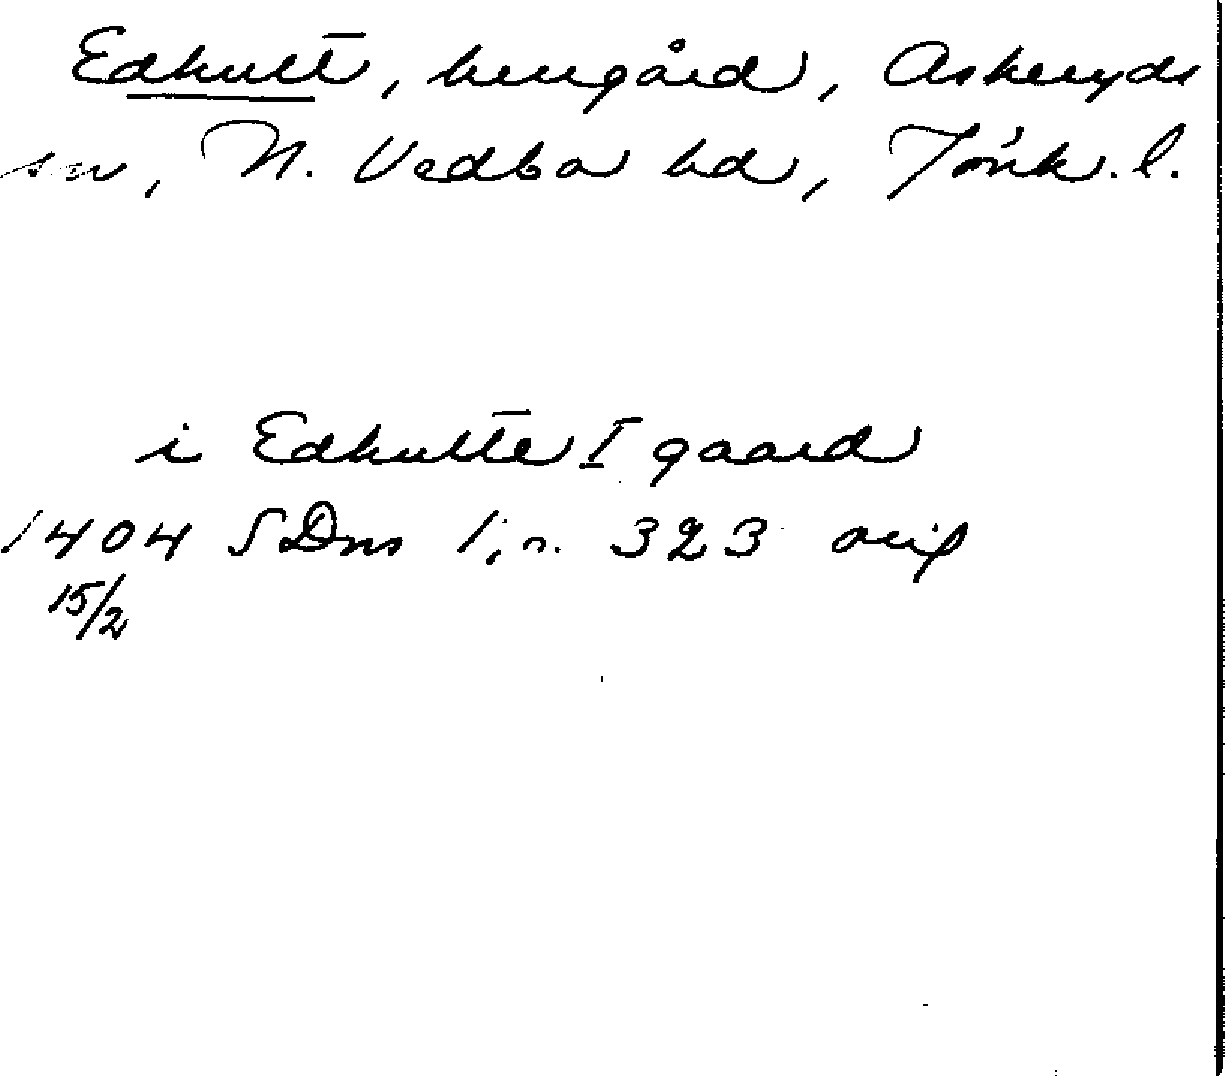 Edhult, herrgård, Askeryds
sn, N. Vedbo hd, Jönk. l.
i Edhulte I gaard
1404 SDns 1, n. 323 orig
15/2